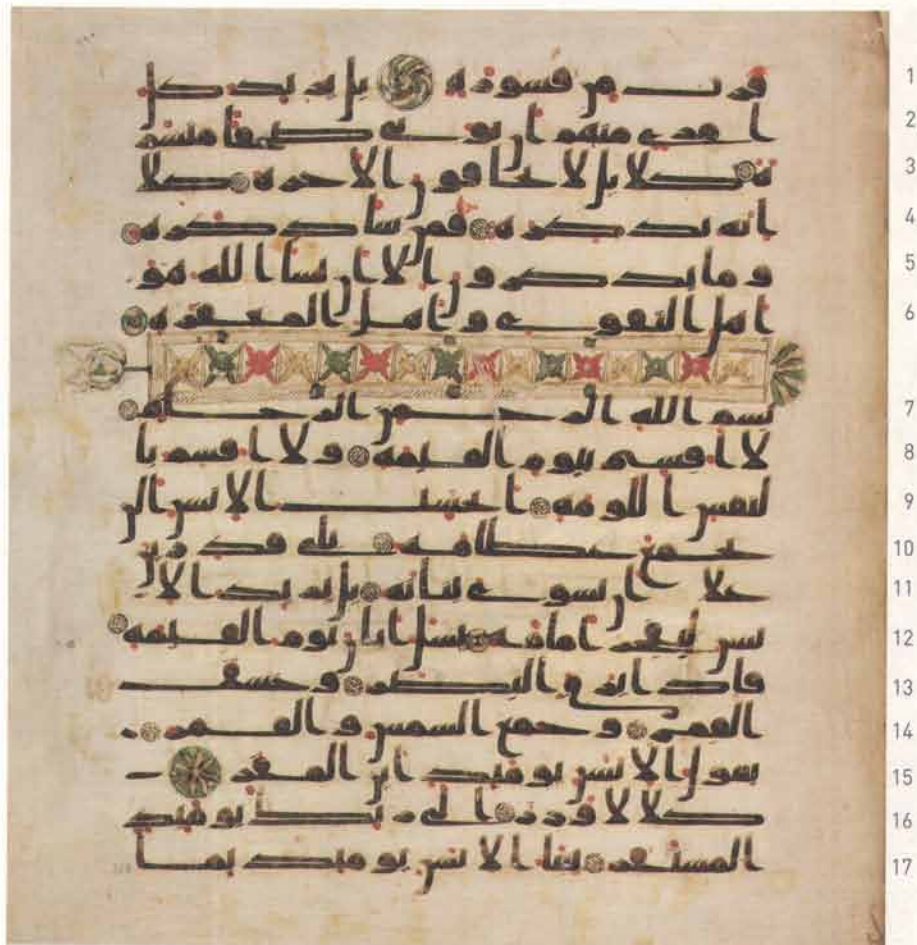 1 فرت من قسورة بل يريد كل
2 امرى منهم ان يوتى صحفا منشر
3 ة كلا بل لا يخافون الاخرة كلا
4 انه تذكرة فمن شا ذكره
5 و ما يذكرون الا ان يشا الله هو
6 اهل التقوى و اهل المغفرة
7 بسم الله الرحمن الرحيم
8 لا اقسم بيوم القيمة و لا اقسم با
9 لنفس اللومة ايحسب الانسن الن
10 نجمع عظامه بلى قدرين
11 على ان نسوى بنانه بل يريد الا
12 نسن ليفجر امامه يسل ايان يوم القيمة
13 فاذا برق البصر و خسف
14 القمر و جمع الشمس و القمر
15 يقول الانسن يومئذ اين المفر
16 كلا لا وزر الى ربك يومئذ
17 المستقر ينبا الانسن يومئذ بما